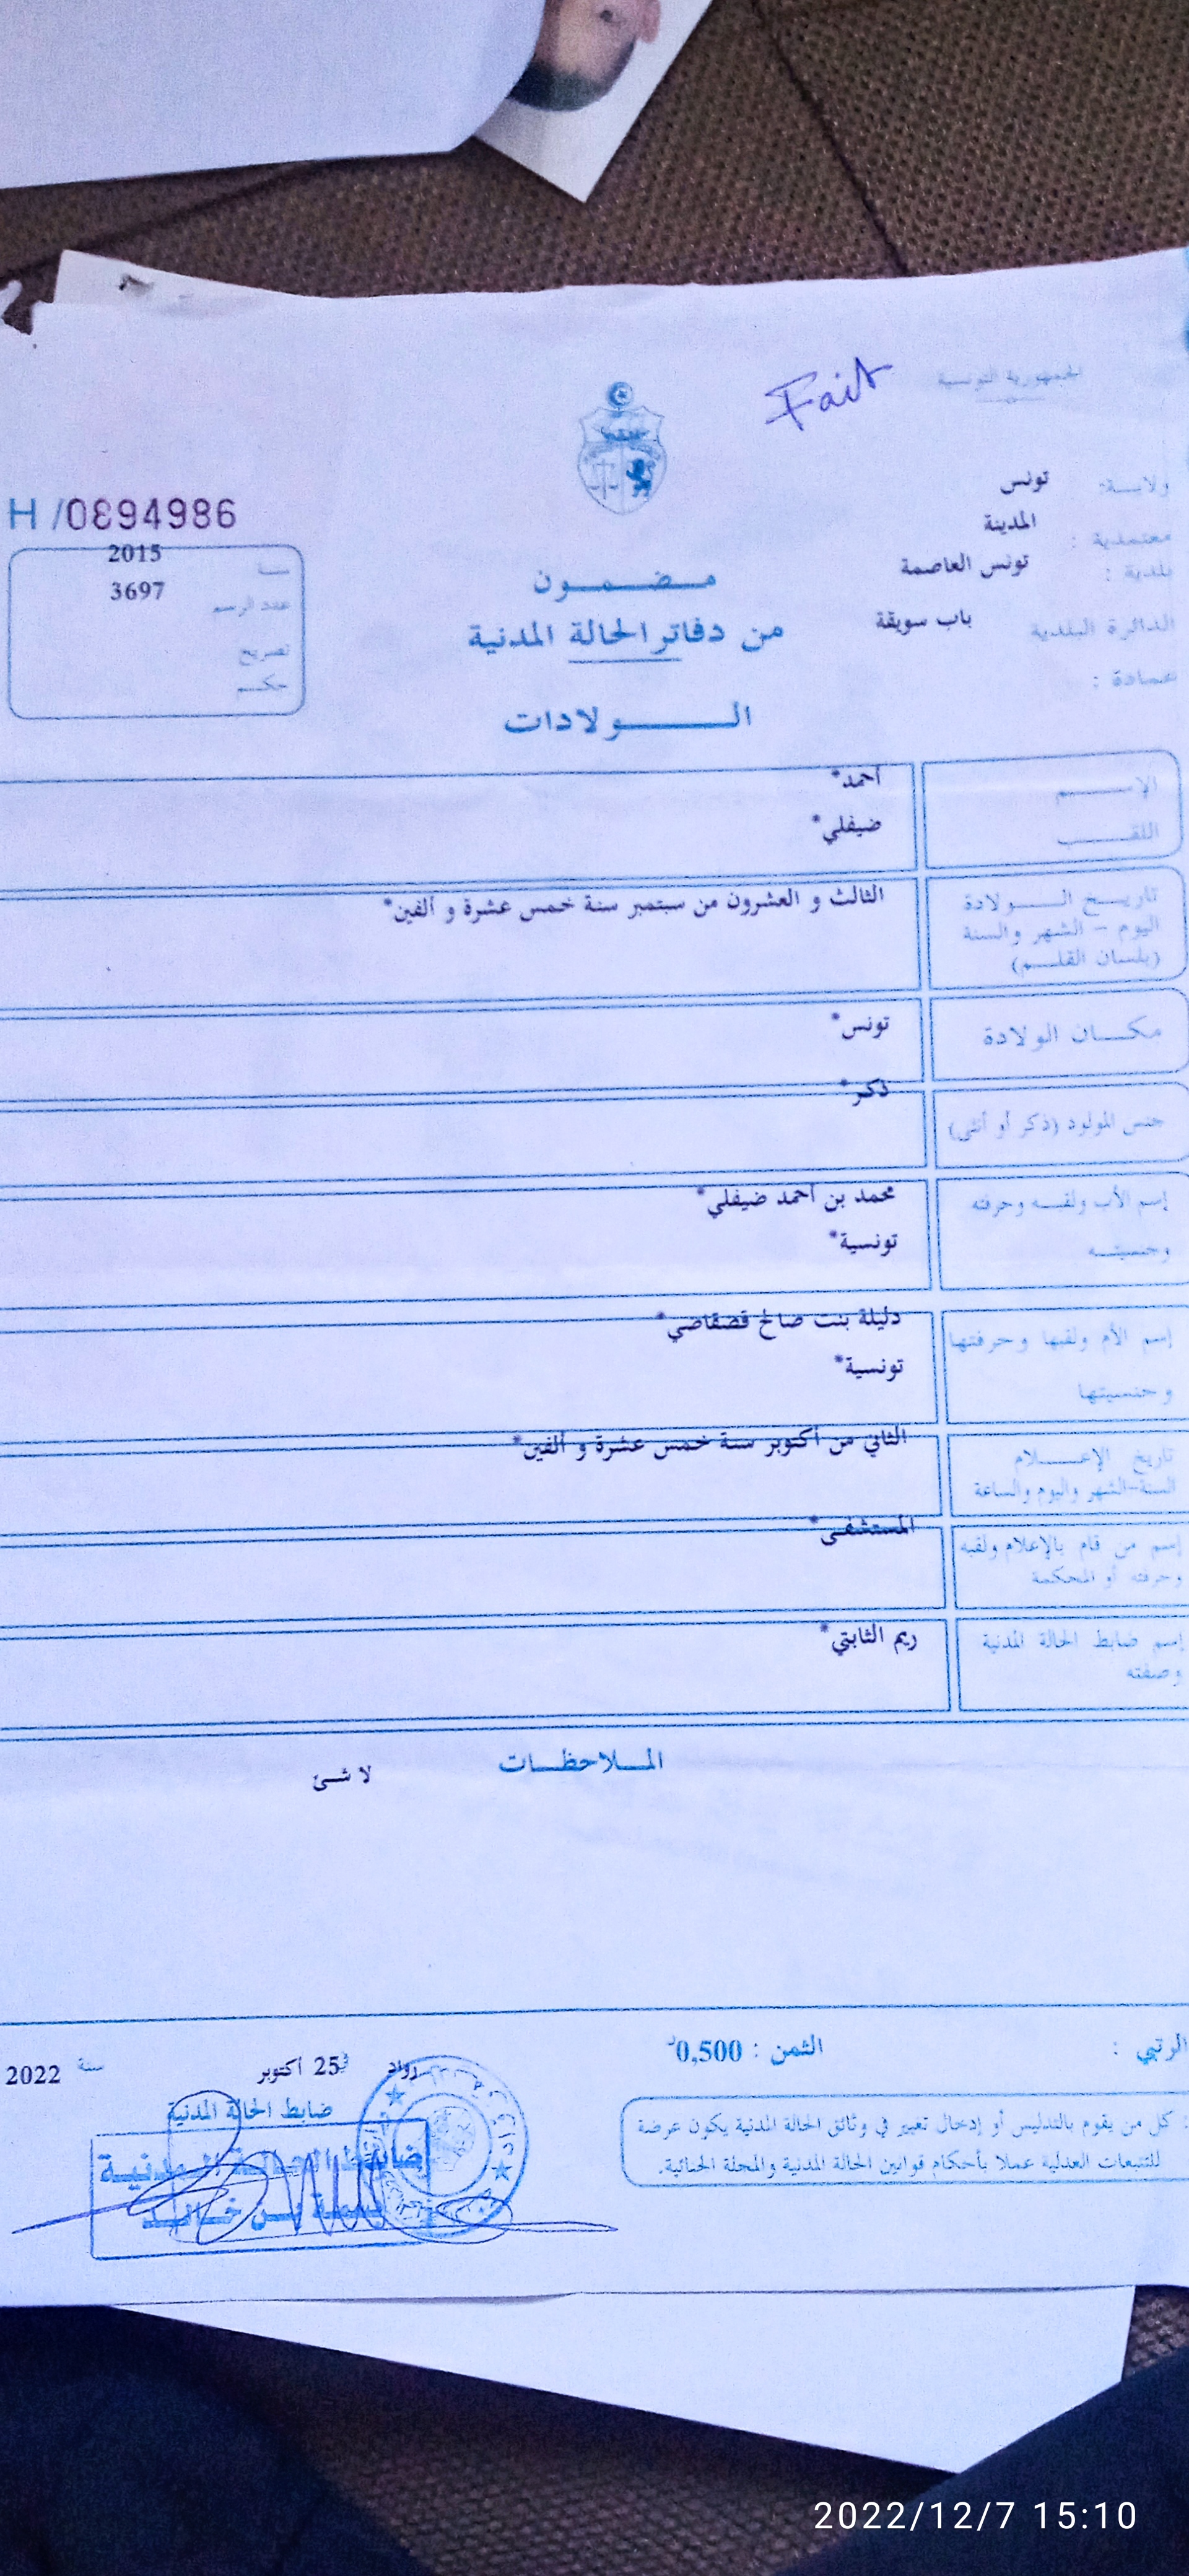 الجمهورية التونسية
Fait
ولايـــة: تونس
معتمدية : المدينة
بلدية : تونس العاصمة
الدائرة البلدية باب سويقة
عمادة :
H /0894986
سنة 2015
عدد الرسم 3697
تصريح
حكم
مـضـمـون
من دفاتر الحالة المدنية
الـــولادات
الإســـم أحمد*
اللقـــب ضيفلي*
تاريـخ الـــولادة الثالث و العشرون من سبتمبر سنة خمس عشرة و ألفين*
اليوم – الشهر والسنة
(بلسان القلـــم)
مكـــان الولادة تونس*
جنس المولود (ذكر أو أنثى) ذكر*
إسم الأب ولقبـه وحرفته محمد بن أحمد ضيفلي*
وجنسيتـــه تونسية*
إسم الأم ولقبها وحرفتها دليلة بنت صالح قصقاصي*
وجنسيتها تونسية*
تاريخ الإعــلام الثاني من أكتوبر سنة خمس عشرة و ألفين*
السنة-الشهر واليوم والساعة
إسم من قام بالإعلام ولقبه المستشفى*
وحرفته أو المحكمة
إسم ضابط الحالة المدنية ريم الثابتي*
وصفته
المــلاحظــات
لا شئ
الرتبي :
الثمن : 0,500د
رواد في 25 أكتوبر سنة 2022
ضابط الحالة المدنية
ضابط الحالة المدنية
بن خالد
: كل من يقوم بالتدليس أو إدخال تغيير في وثائق الحالة المدنية يكون عرضة
للتتبعات العدلية عملا بأحكام قوانين الحالة المدنية والمجلة الجنائية.
2022/12/7 15:10